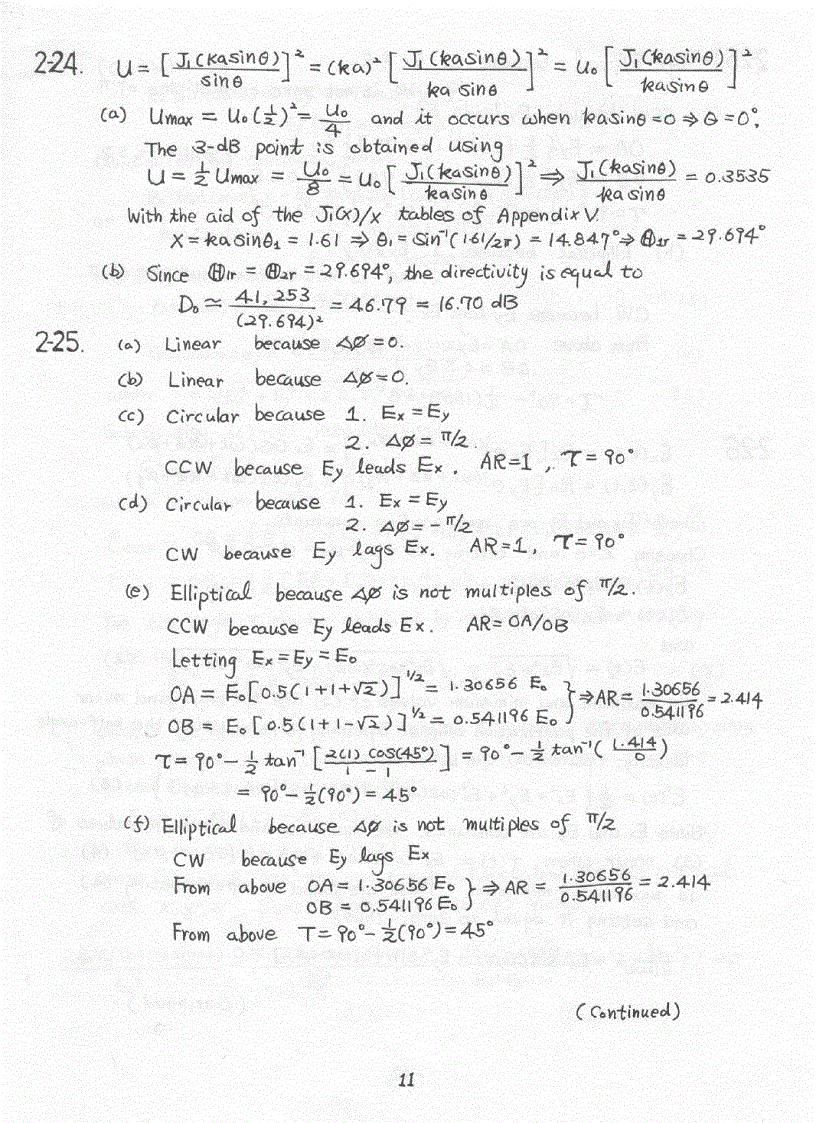 2-24. U = [J₁(ka sinθ)/sinθ]² = (ka)² [J₁(ka sinθ)/ka sinθ]² = U₀ [J₁(ka sinθ)/ka sinθ]²
(a) Umax = U₀(1/2)² = U₀/4 and it occurs when ka sinθ = 0 ⇒ θ = 0°.
The 3-dB point is obtained using
U = 1/2 Umax = U₀/8 = U₀ [J₁(ka sinθ)/ka sinθ]² ⇒ J₁(ka sinθ)/ka sinθ = 0.3535
With the aid of the J₁(x)/x tables of Appendix V
X = ka sinθ₁ = 1.61 ⇒ θ₁ = sin⁻¹(1.61/2π) = 14.847° ⇒ Θ₁r = 29.694°
(b) Since Θ₁r = Θ₂r = 29.694°, the directivity is equal to
D₀ ≃ 41,253/(29.694)² = 46.79 = 16.70 dB
2-25. (a) Linear because Δø = 0.
(b) Linear because Δø = 0.
(c) Circular because 1. Ex = Ey
2. Δø = π/2
CCW because Ey leads Ex. AR = 1, τ = 90°
(d) Circular because 1. Ex = Ey
2. Δø = -π/2
CW because Ey lags Ex. AR = 1, τ = 90°
(e) Elliptical because Δø is not multiples of π/2.
CCW because Ey leads Ex. AR = OA/OB
Letting Ex = Ey = E₀
OA = E₀[0.5(1+1+√2)]^1/2 = 1.30656 E₀ } ⇒ AR = 1.30656/0.541196 = 2.414
OB = E₀[0.5(1+1-√2)]^1/2 = 0.541196 E₀
τ = 90° - 1/2 tan⁻¹[2(1) cos(45°)/1-1] = 90° - 1/2 tan⁻¹(1.414/0)
= 90° - 1/2(90°) = 45°
(f) Elliptical because Δø is not multiples of π/2
CW because Ey lags Ex
From above OA = 1.30656 E₀ } ⇒ AR = 1.30656/0.541196 = 2.414
OB = 0.541196 E₀
From above τ = 90° - 1/2(90°) = 45°
(Continued)
11